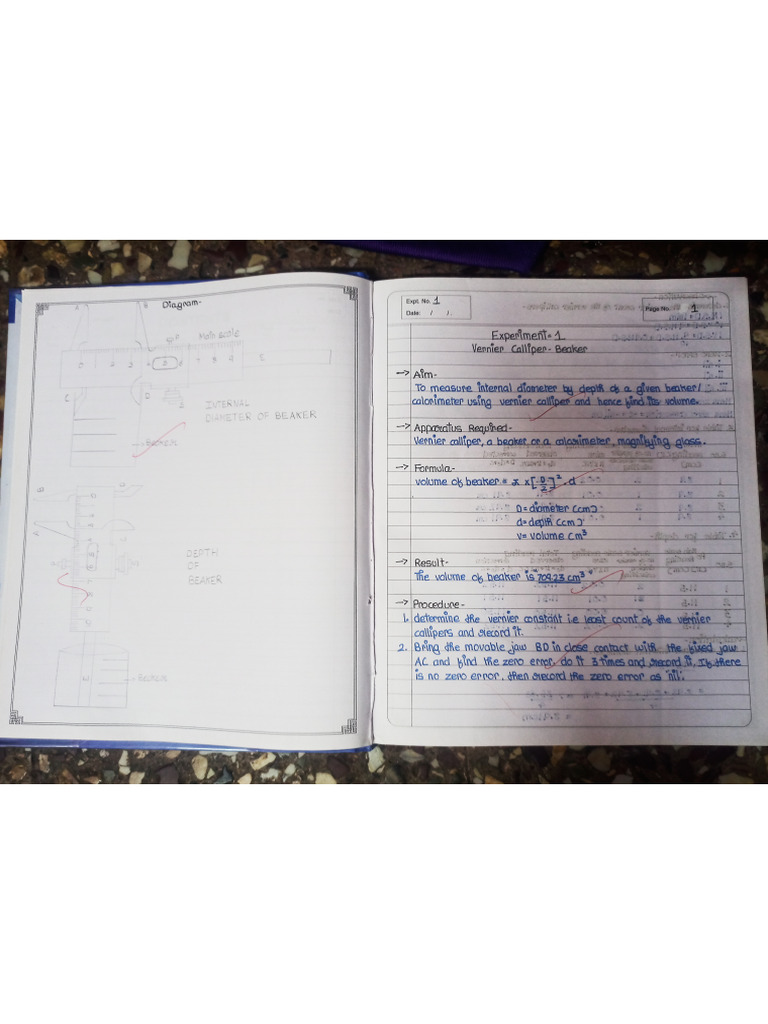 Diagram-
Main scale
INTERNAL
DIAMETER OF BEAKER
Beaker
DEPTH
OF
BEAKER
Beaker
Expt. No. 1
Date: / /.
Page No. 1
Experiment-1
Vernier Calliper-Beaker
→ Aim-
To measure internal diameter by depth of a given beaker/
calorimeter using vernier calliper and hence find its volume.
→ Apparatus Required-
Vernier calliper, a beaker or a calorimeter, magnifying glass.
→ Formula-
volume of beaker = π x [D/2]². d
D = diameter (cm)
d = depth (cm)
v = volume cm³
→ Result-
The volume of beaker is 709.23 cm³
→ Procedure-
1. determine the vernier constant i.e least count of the vernier
callipers and record it.
2. Bring the movable jaw BD in close contact with the fixed jaw
AC and find the zero error. do it 3 times and record it. If there
is no zero error. then record the zero error as 'nil'.